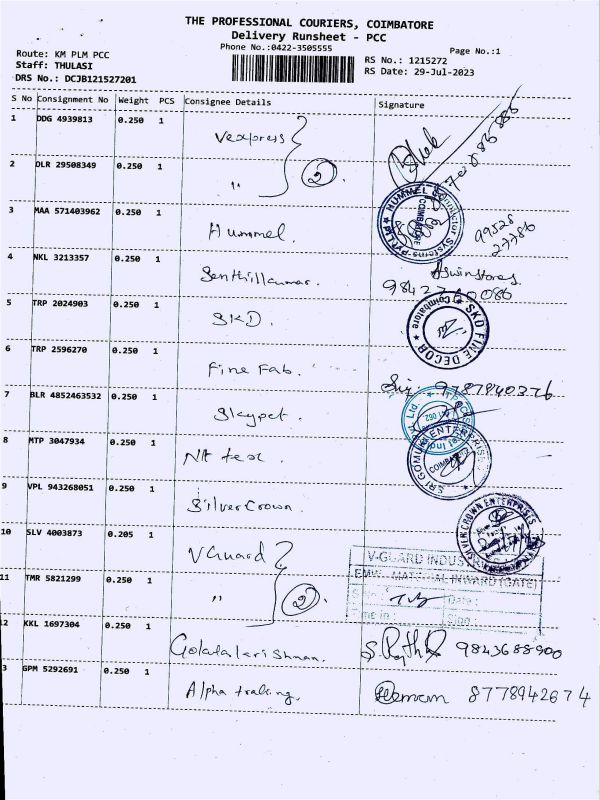 THE PROFESSIONAL COURIERS, COIMBATORE
Delivery Runsheet - PCC
Phone No.:0422-3505555
Page No.:1
Route: KM PLM PCC
Staff: THULASI
DRS No.: DCJB121527201
RS No.: 1215272
RS Date: 29-Jul-2023
S No Consignment No Weight PCS Consignee Details Signature
1 DDG 4939813 0.250 1 Vexpress
2 DLR 29508349 0.250 1 " 2
3 MAA 571403962 0.250 1 Hummel.
HUMMEL Systems COIMBATORE
99528
27786
4 NKL 3213357 0.250 1 Senthilkumar.
5 TRP 2024903 0.250 1 SKD.
SKD FINE DECOR Coimbatore
6 TRP 2596270 0.250 1 Fine Fab.
9787940376
7 BLR 4852463532 0.250 1 Skypet.
8 MTP 3047934 0.250 1
SRI GOMU ENTERPRISES COIMBATORE
9 VPL 943268051 0.250 1 Silver Crown.
SILVER CROWN ENTERPRISES
10 SLV 4003873 0.205 1 V Guard
V-GUARD INDUS
MATERIAL INWARD (GATE)
Date :
Time in : Sign :
11 TMR 5821299 0.250 1 " 2
12 KKL 1697304 0.250 1 9843688900
3 GPM 5292691 0.250 1 Alpha trading. 8778942674